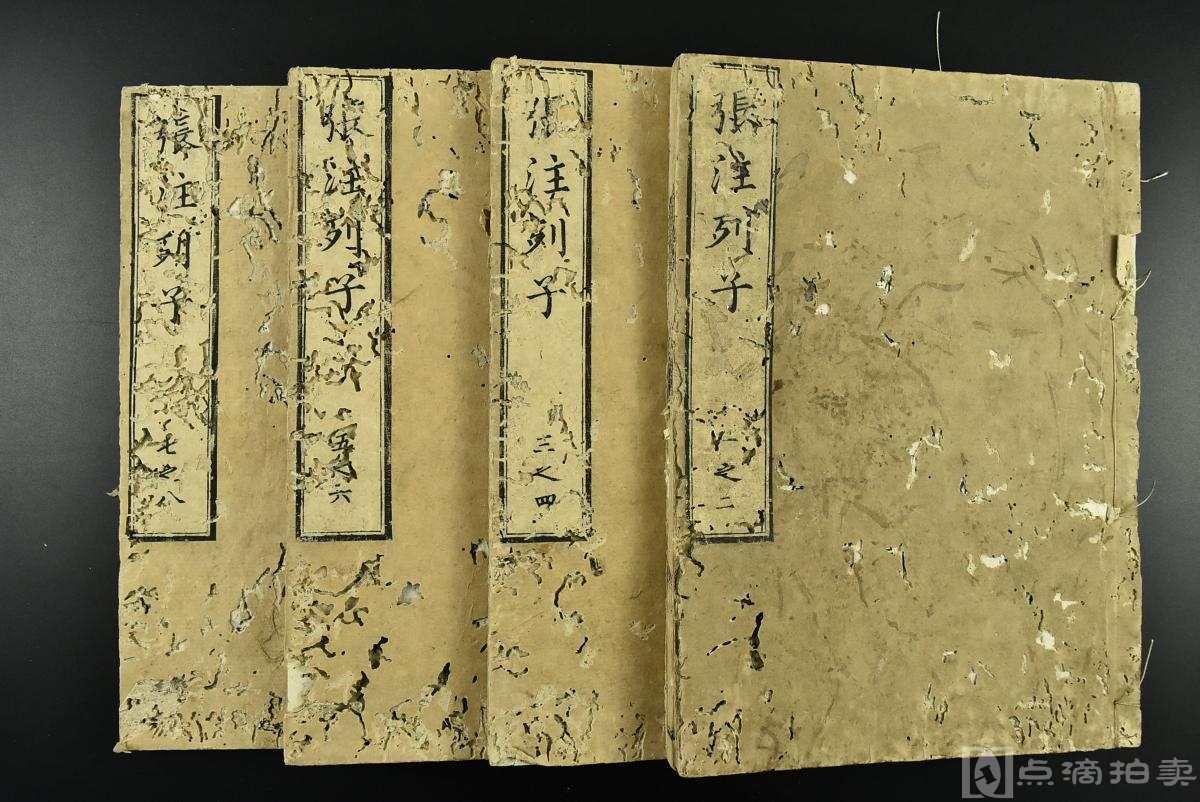 張注列子 一之二
張注列子 三之四
張注列子 五之六
張注列子 七之八
点滴拍卖